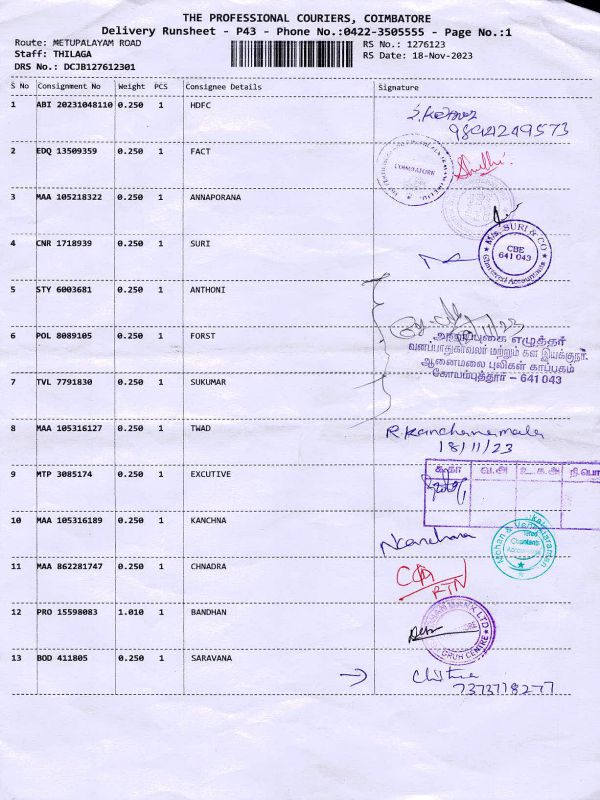 THE PROFESSIONAL COURIERS, COIMBATORE
Delivery Runsheet - P43 - Phone No.:0422-3505555 - Page No.:1
Route: METUPALAYAM ROAD
RS No.: 1276123
Staff: THILAGA
RS Date: 18-Nov-2023
DRS No.: DCJB127612301
S No Consignment No Weight PCS Consignee Details Signature
1 ABI 20231048110 0.250 1 HDFC
9894249573
2 EDQ 13509359 0.250 1 FACT
COIMBATORE
3 MAA 105218322 0.250 1 ANNAPORANA
4 CNR 1718939 0.250 1 SURI
M/s. SURI & CO
CBE
641 043
Chartered Accountants
5 STY 6003681 0.250 1 ANTHONI
6 POL 8089105 0.250 1 FORST
அஞ்சல்புகை எழுத்தர்
வனப்பாதுகாவலர் மற்றும் கள இயக்குநர்
ஆனைமலை புலிகள் காப்பகம்
கோயம்புத்தூர் – 641 043
7 TVL 7791830 0.250 1 SUKUMAR
8 MAA 105316127 0.250 1 TWAD
R.Kanchanamala
18/11/23
9 MTP 3085174 0.250 1 EXCUTIVE
வ.அ உ.க.அ நி.பொ
10 MAA 105316189 0.250 1 KANCHNA
N Kanchana
Mohan & Venkataraman
Chartered
Accountants
11 MAA 862281747 0.250 1 CHNADRA
RTN
12 PRO 15598083 1.010 1 BANDHAN
BANK LTD
GRUH CENTRE
13 BOD 411805 0.250 1 SARAVANA
Chitra
7373718277